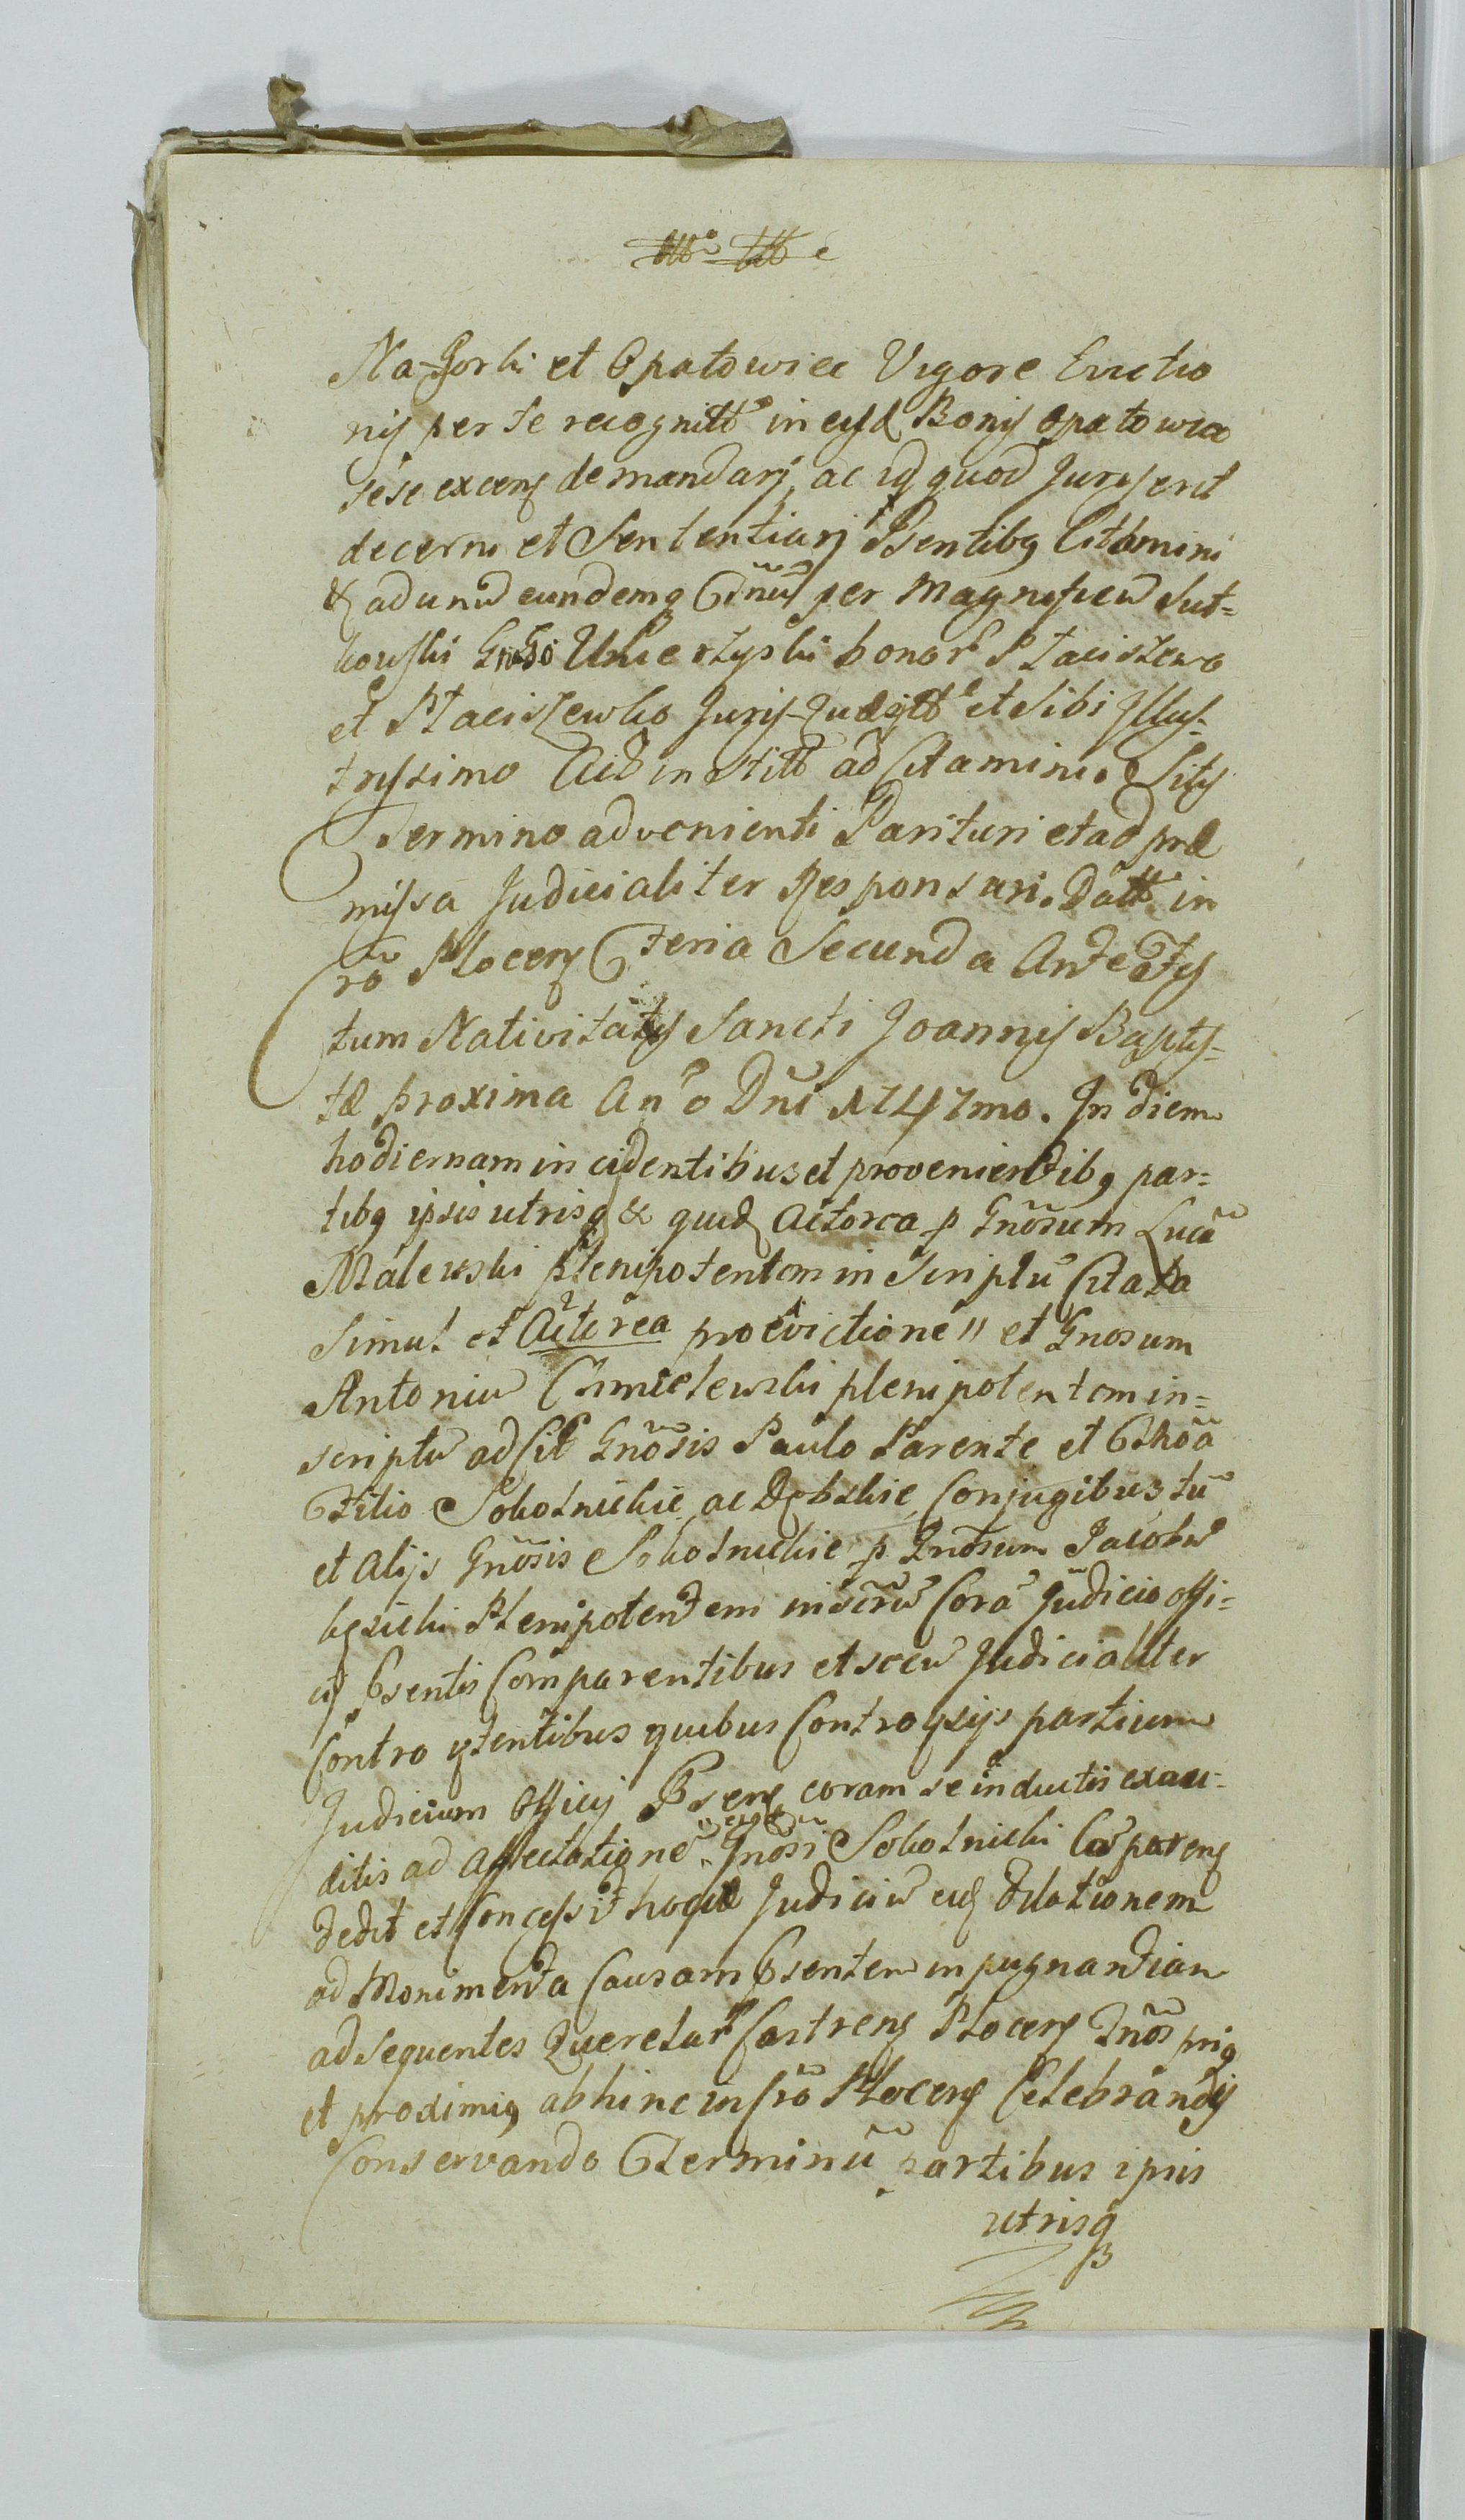 Na-Gorki et Opatowiec Vigore Evictio
nis per se recognitt in eisd Bonis Opatowiec
sese exceng demandari, ac id quod Juris erit
decerni et Sententiari Psentibg Citamini
& ad unũ eundemq Tr̃nũ per Magnificũ Sut=
kowski Gnoso Umierzyski bonor Staciszewo
et Staciszewko Juris-Quæsitt et Sibi Illus=
trissimo Act institt ad Citamini. Sitis
Termino advenienti Parituri et ad præ
missa Judicialiter Responsuri. Datt in
rõ Plocens Feria Secunda Ante Fes
tum Nativitatis Sancti Joannis Baptis=
tæ proxima An͠o Dñi 1747mo. In diem
hodiernam incidentibus et provenientibg par=
tibg ipsis utrisq & quid Actorea p Gnõsum Lucã
Malewski Plenipotentem in Scriptũ Citata
Simul et Actorea pro evictione " et Gnosum
Antoniũ Chmielewski plenipotentem in=
scriptũ ad Cit Gnõsis Paulo Parente et Thõa
Filio Sokolnickie ac Dębskie Conjugibus tũ
et Alijs Gnõsis Sokolnickie p Gnõsum Jacobũ
Plenipotentem inscrũ Corã Judicio offi=
cij Psentis Comparentibus et sccũ Judicialiter
Contro vtentibus quibus Controvsijs partium
Judicium Officij Psens coram se inductis exau=
ditis ad Affectationẽ Gnõsi Sokolnicki Cõparens
dedit et Concessit hocqe Judiciũ eis dilationem
ad Monimenta Causam Psentem in pugnandiam
ad Sequentes Querelar Castrens Plocens Tr̃nos prig
et proximiq abhinc in Crõ Plocens Celebrandis
Conservando Terminũ partibus ipsis
utrisq